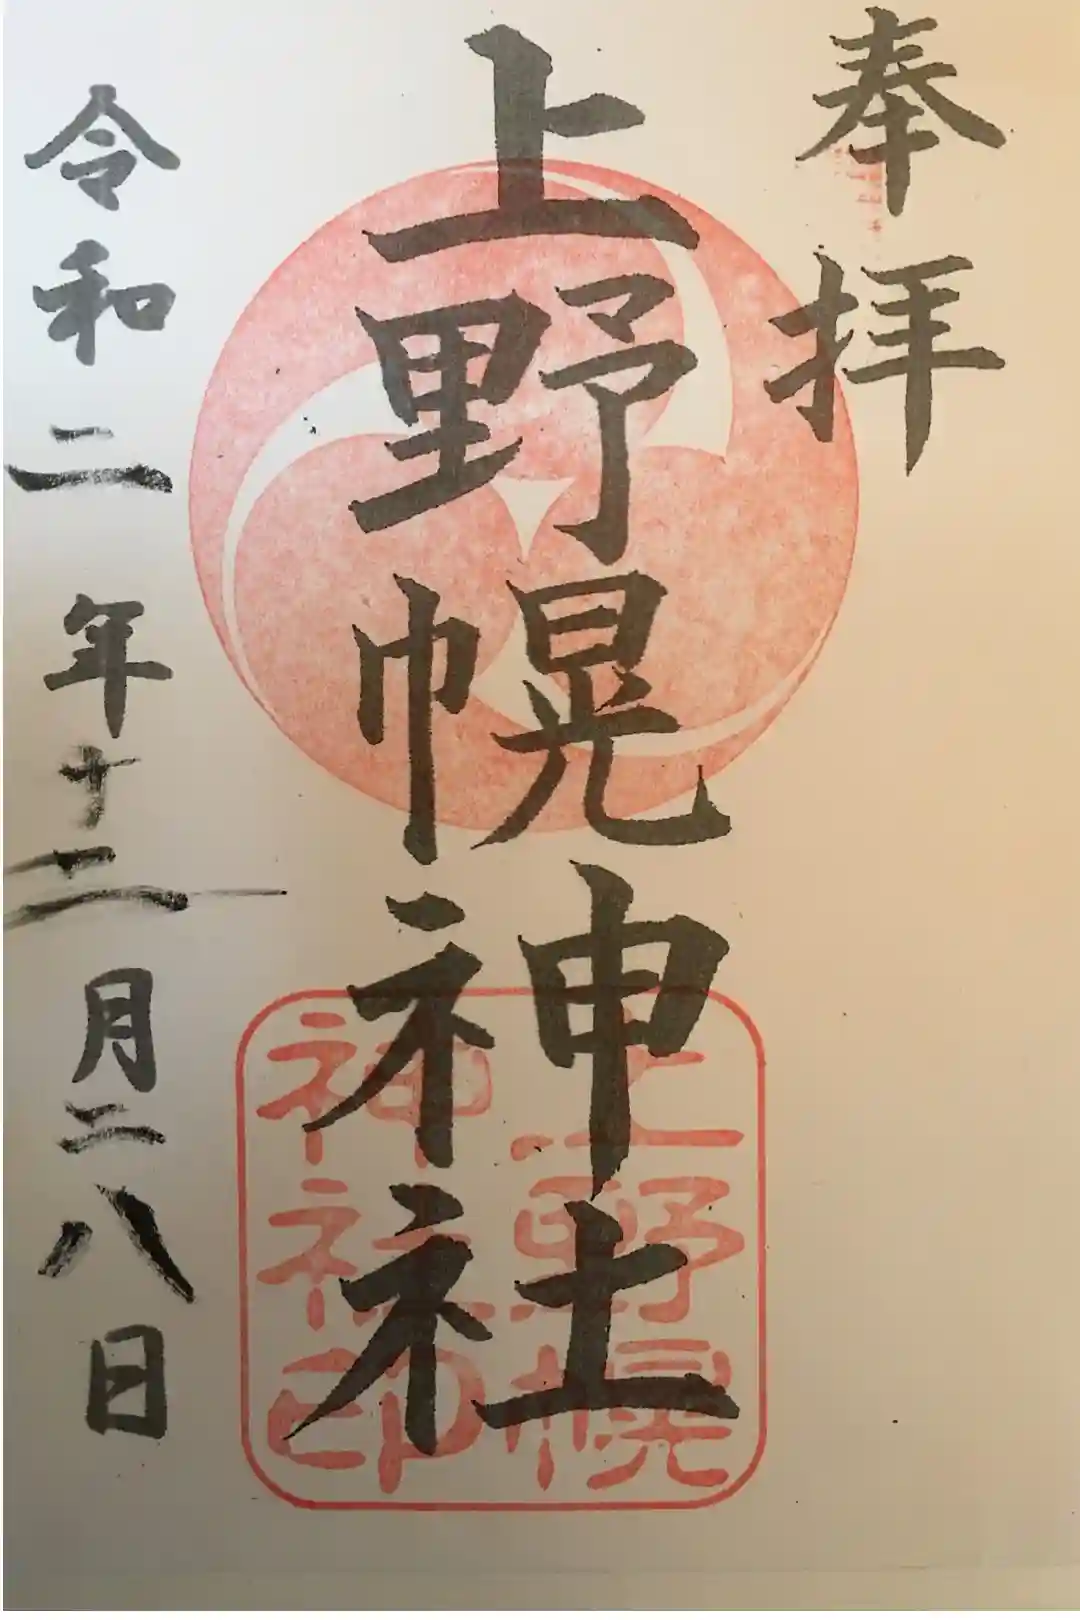 奉拝
上野幌神社
令和二年十二月二八日
上野幌
神社印